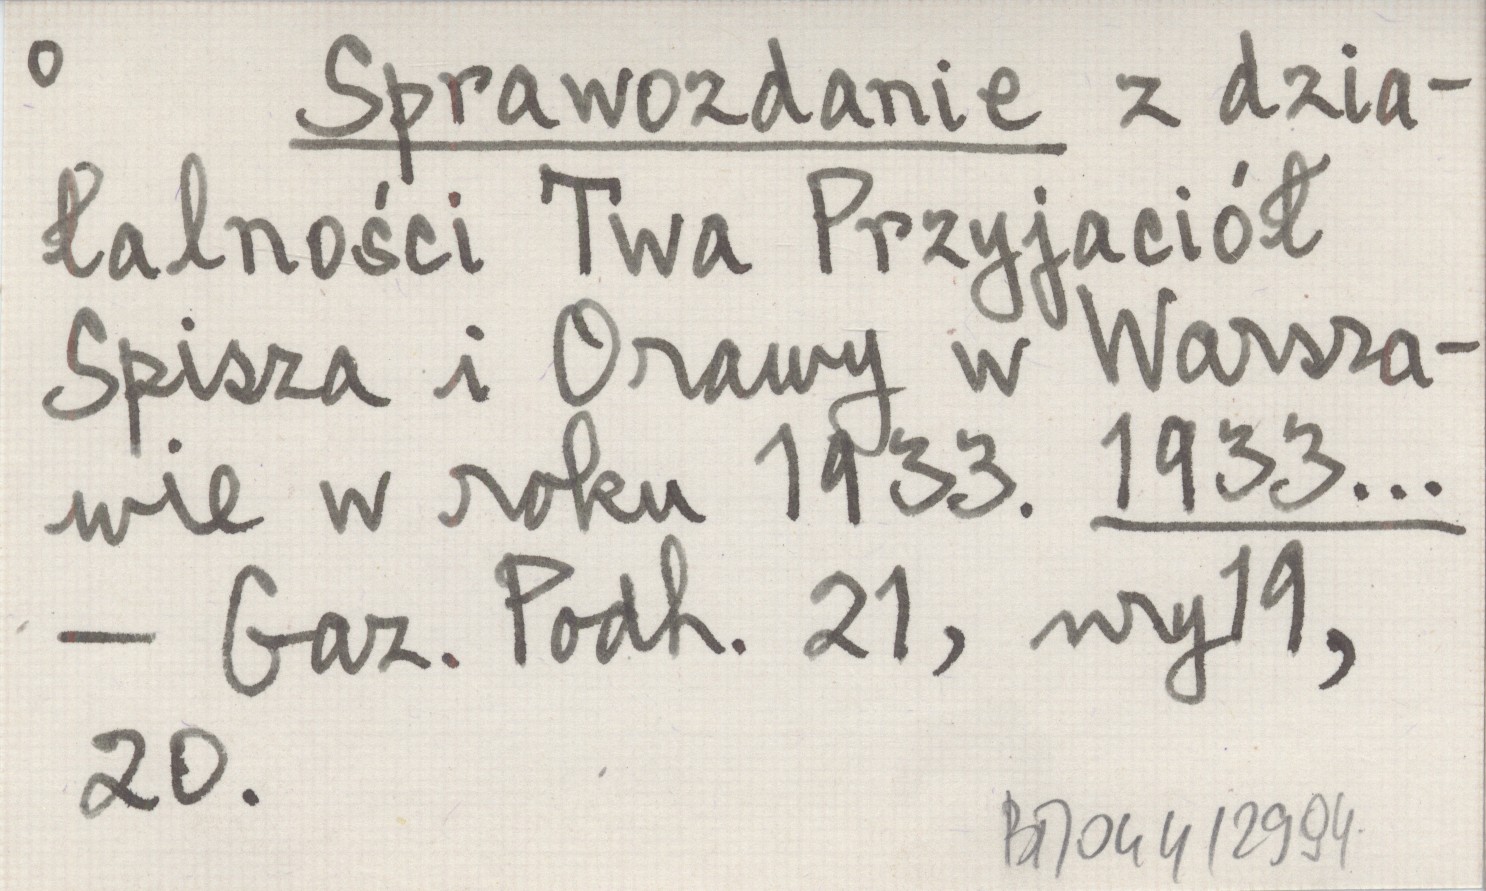 o Sprawozdanie z dzia-
łalności Twa Przyjaciół
Spisza i Orawy w Warsza-
wie w roku 1933. 1933...
— Gaz. Podh. 21, nry 19,
20.